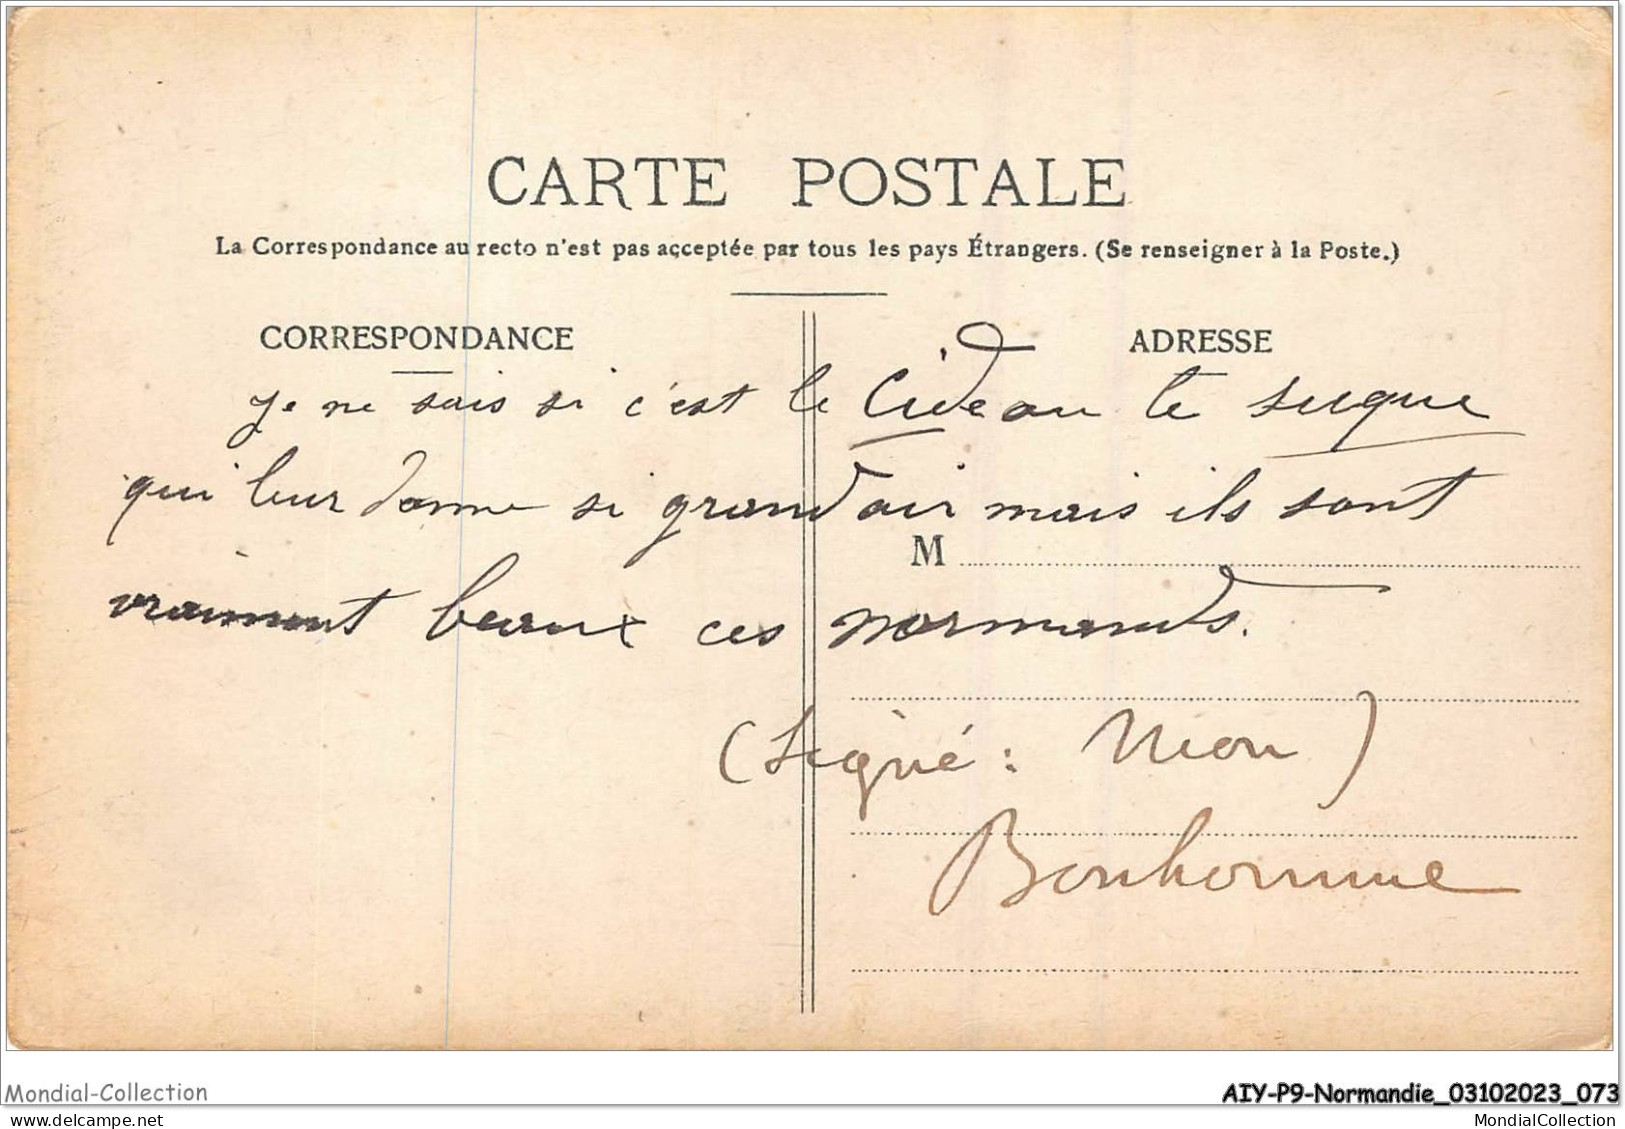 CARTE POSTALE
La Correspondance au recto n'est pas acceptée par tous les pays Étrangers. (Se renseigner à la Poste.)
CORRESPONDANCE
ADRESSE
Je ne sais si c'est le Cidre ou le
qui leur donne si grand air mais ils sont
M
vraiment beaux ces normands.
(Signé : Mon)
Bonhomme
Mondial-Collection
AIY-P9-Normandie_03102023_073
delcampe.net
MondialCollection